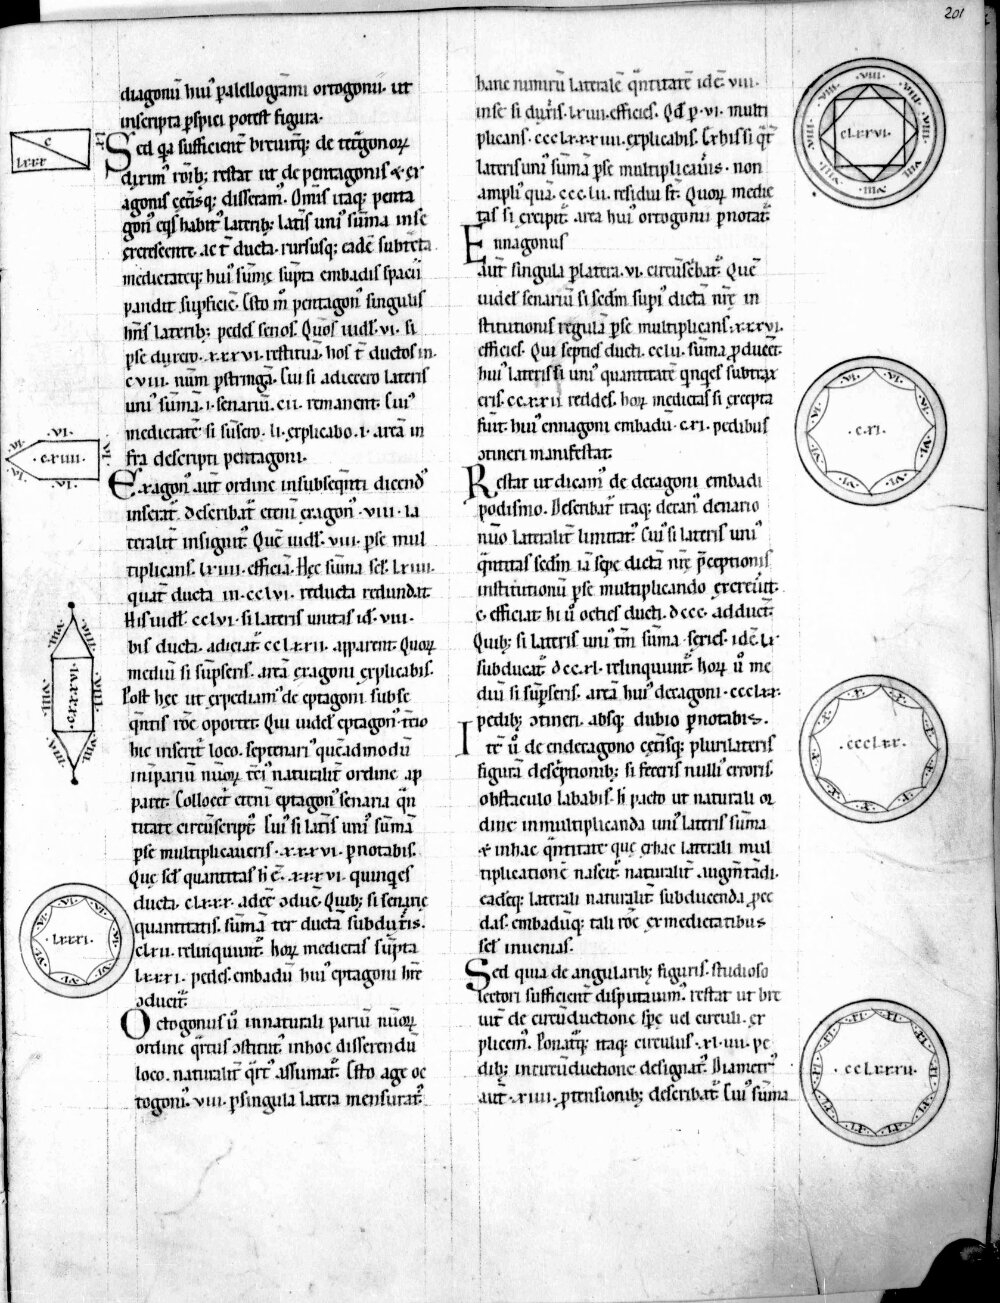 201
diagonū hui' palellogrami ortogonii. ut
inscripta pspici potest figura.
Sed q̄a sufficient̄ breuit̄q; de tetragonoꝝ
diximˀ rōib; restat ut de pentagonis & ex
agonis cet̄isq; disseram'. Om̄is itaq; penta
gon' eq̄s habit' laterib; lat̄is uni' sūma in se
excrescente. ac t̄ ducta. rursusq; eadē subtracta
medietateq; hui' sūmę sūpta embadis spacii
pandit supficiē. Esto in pentagon' singulis
hn̄s laterib; pedes senos. Quos uidel' .vi. si
p se duxero .xxxvi. restituā. hos t̄ ductos in
cviii. num̄ pstringā. Cui si adiecero lateris
uni' sūmā .i. senariū. cii. remanent. Cui'
medietatē si sūsero. li. explicabo .i. areā in
fra descripti pentagoni.
Exagon' aut̄ ordine in subseq̄nti dicend'
inserat'. describat' eteni exagon' .viii. la
teralit̄ insignit'. Quē uidel' .viii. p se mul
tiplicans. lxiiii. efficiā. Hęc sūma scl' .lxiiii.
quat' ducta in .cclvi. reducta redundat.
His uidel' cclvi. si lateris unitas id' .viii.
bis ducta. adiciat'. cclxxii. apparent. Quoꝝ
mediū si sūpseris. areā exagoni explicabis.
Post hęc ut expediam' de eptagoni subse
q̄ntis rōe oportet. Qui uidel' eptagon' t̄cio
hic inserit' loco. septenari' quēadmodū
inpariū num̄oꝝ t̄ci' naturalit̄ ordine ap
paret. Collocet' eteni eptagon' senaria q̄n
titate circūscript'. Cui' si lat̄is uni' sūmā
p se multiplicaueris .xxxvi. pnotabis.
Que scl' quantitas h̄ ē .xxxvi. quinq̄es
ducta. clxxx. adeē ꝯducit. Quib; si senarię
quantitatis. sūmā ter ductā subduxis.
clxii. relinquunt'. hoꝝ medietas sūpta
lxxxi. pedes. embadū hui' eptagoni hr̄e
ꝯducit.
Octogonus ū in naturali pariū num̄oꝝ
ordine q̄rtus ꝯstitut'. in hoc disserendū
loco. naturalit̄ q̄rt' assumat'. Esto age oc
togon' .viii. p singula latera mensurat'.
hanc numirū lateralē q̄ntitatē idē .viii.
in se si duxis. lxiiii. efficies. Qd' p .vi. multi
plicans. ccclxxxiiii. explicabis. Ex his si q̄t̄
lateris uni' sūmā p se multiplicauis. non
ampli' quā .ccclii. residui st̄. Quoꝝ medie
tas si excipit'. area hui' ortogonii pnotat'.
Ennagonus
aut̄ singula p latera .vi. circūscbat'. Quē
uidel' senariū si scdm̄ supi' dictā nr̄ę in
stitutionis regulā p se multiplicans .xxxvi.
efficies. Qui septies ducti. cclii. sūmā pducet.
hui' lateris si uni' quantitatē q̄nq̄es subtrax
eris. ccxxii reddes. hoꝝ medietas si excepta
fuit. hui' ennagoni embadū .cxi. pedibus
ꝯtineri manifestat.
Restat ut dicam' de decagoni embadi
podismo. Describat' itaq; decan' denario
nūo lateralit̄ limitat'. Cui' si lateris uni'
q̄ntitas scdm̄ iā sępe dictā nr̄ę pceptionis
institutionū p se multiplicando excreuit.
c. efficiat. hi ū octies ducti. dccc. adducet.
Quib; si lateris uni' tm̄ sūma series. idē lx
subducat'. dccxl. relinquunt'. hoꝝ ū me
diū si sūpseris. areā hui' decagoni .ccclxx.
pedib; ꝯtineri. absq; dubio pnotabis.
Itē ū de endecagono cet̄isq; plurilateris
figurā descptionib; si feceris nulli' erroris.
obstaculo lababis. h̄ pacto ut naturali or
dine in multiplicanda uni' lateris sūma
& in hac q̄ntitate que ex hac laterali mul
tiplicationē nascit'. naturalit̄ augm̄tādi.
eadēq; laterali naturalit̄ subducenda pce
das. embadūq; tali rōe ex medietatibus
scl' inuenias.
Sed quia de angularib; figuris. studioso
lectori sufficient̄ disputauim'. restat ut bre
uit̄ de circūductione spe uel circuli. ex
plicem'. Ponat'q; itaq; circulus .xliiii. pe
dib; in circūductione designat'. Diametr'
aut̄ .xiiii. ptensionib; describat'. Cui' sūma
c
lxxx
lx
.VI.
.cxiiii.
.VI.
.VI.
.VI.
.VI.
.VIII.
.VIII.
.VIII.
.VIII.
.VIII.
.VIII.
.lxxxi.
.VI.
.VI.
.VI.
.VI.
.VI.
.VI.
.VI.
clxxvi.
.VIII.
.VIII.
.VIII.
.VIII.
.VIII.
.VIII.
.VIII.
.VIII.
.cxi.
.VI.
.VI.
.VI.
.VI.
.VI.
.VI.
.ccclxx.
.X.
.X.
.X.
.X.
.X.
.X.
.X.
.X.
.cclxxxii.
.XI.
.XI.
.XI.
.XI.
.XI.
.XI.
.XI.
.XI.